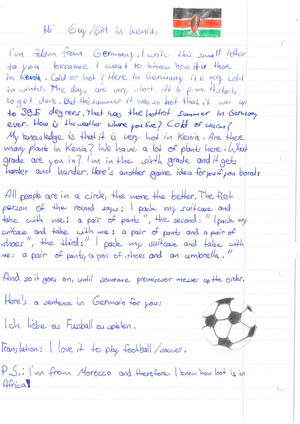 Hi Guy/Girl in Kenia,
I'm Adem from Germany. I write this small letter
to you because I want to know how it is there
in Kenia. Cold or hot? Here in Germany it is very cold
in winter. The days are very short. At 6 p.m. it starts
to get dark. But this summer it was so hot that it was up
to 39,5 degrees. That was the hottest summer in Germany
ever. How is the weather where you live? Cold or warm?
My knowledge is that it is very hot in Kenia. Are there
many plants in Kenia? We have a lot of plants here. What
grade are you in? I'm in the sixth grade and it gets
harder and harder. Here's another game idea for you if you bored:
All people are in a circle, the more the better. The first
person of the round says: I pack my suitcase and
take with me: a pair of pants", the second: "I pack my
suitcase and take with me: a pair of pants and a pair of
shoes", the third: "I pack my suitcase and take with
me: a pair of pants, a pair of shoes and an umbrella."
And so it goes on, until someone messes up the order.
Here's a sentence in Germain for you:
Ich liebe es Fussball zu spielen.
Translation: I love it to play football/soccer.
P.S.: I'm from Morocco and therefore I know how hot is in
Africa!